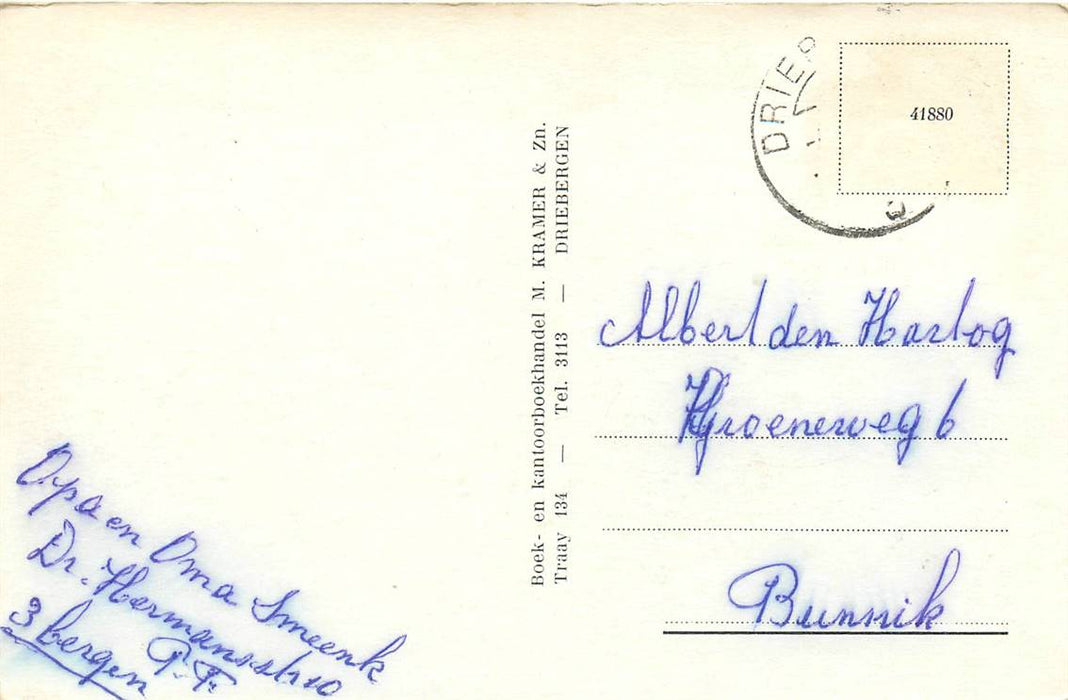 Opa en Oma Smeenk
Dr. Hermansstr 10
3 bergen P.F.
Boek- en kantoorboekhandel M. KRAMER & Zn.
Traay 134 — Tel. 3113 — DRIEBERGEN
DRIEB
41880
Albert den Hartog
Groeneweg 6
Bunnik